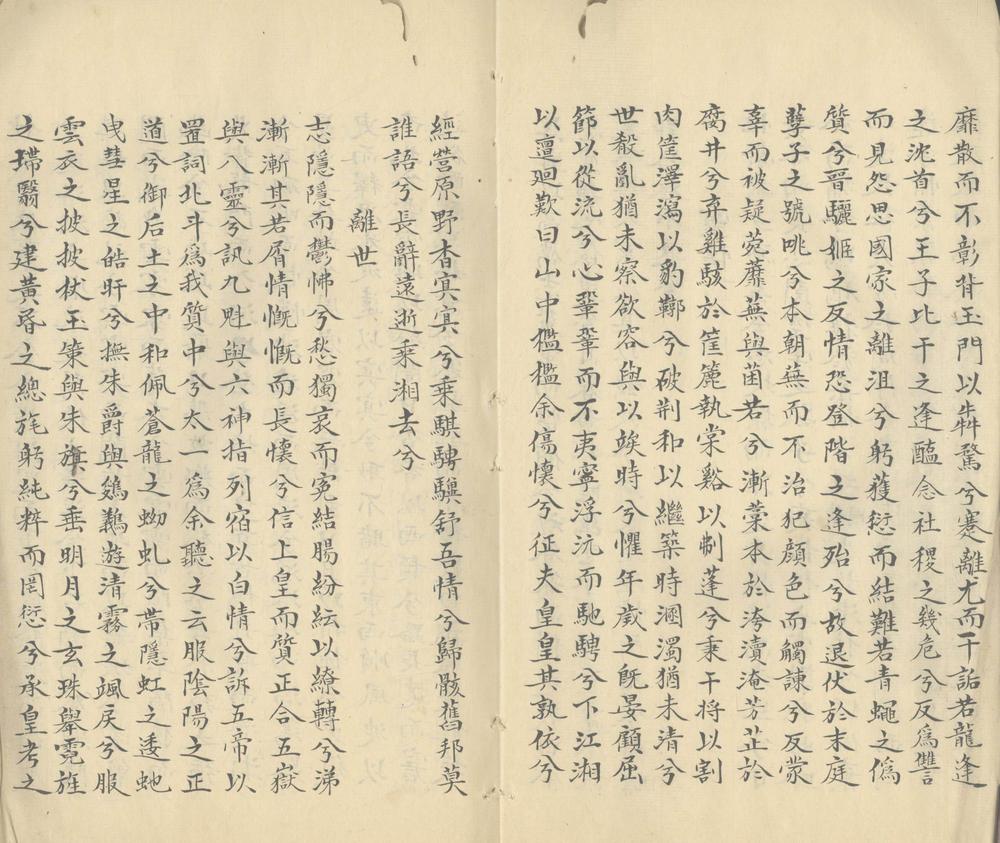 靡散而不彰背玉門以犇騖兮蹇離尤而干詬若龍逢
之沈首兮王子比干之逢醢念社稷之幾危兮反爲讐
而見怨思國家之離沮兮躬獲愆而結難若青蠅之僞
質兮晉驪姬之反情恐登階之逢殆兮故退伏於末庭
孽子之號咷兮本朝蕪而不治犯顏色而觸諫兮反蒙
辜而被疑菀蘼蕪與菌若兮漸藁本於洿瀆淹芳芷於
腐井兮弃雞駭於筐簏執棠谿以制蓬兮秉干将以割
肉筐澤瀉以豹鞹兮破荆和以繼築時溷濁猶未清兮
世殽亂猶未察欲容與以竢時兮懼年歲之旣晏顧屈
節以從流兮心鞏鞏而不夷寧浮沅而馳騁兮下江湘
以邅迴歎曰山中檻檻余傷懷兮征夫皇皇其孰依兮
經營原野杳㝠㝠兮乘騏騁驥舒吾情兮歸骸舊邦莫
誰語兮長辭遠逝乘湘去兮
離世
志隱隱而鬱怫兮愁獨哀而寃結腸紛紜以繚轉兮涕
漸漸其若屑情慨慨而長懷兮信上皇而質正合五嶽
與八靈兮訊九鬿與六神指列宿以白情兮訴五帝以
置詞北斗爲我質中兮太一爲余聽之云服陰陽之正
道兮御后土之中和佩蒼龍之蚴虬兮帶隱虹之逶虵
曳彗星之皓旰兮撫朱爵與鵕鸃遊清霧之颯戾兮服
雲衣之披披杖玉策與朱旗兮垂明月之玄珠舉霓旌
之墆翳兮建黃昬之總旄躬純粹而罔愆兮承皇考之